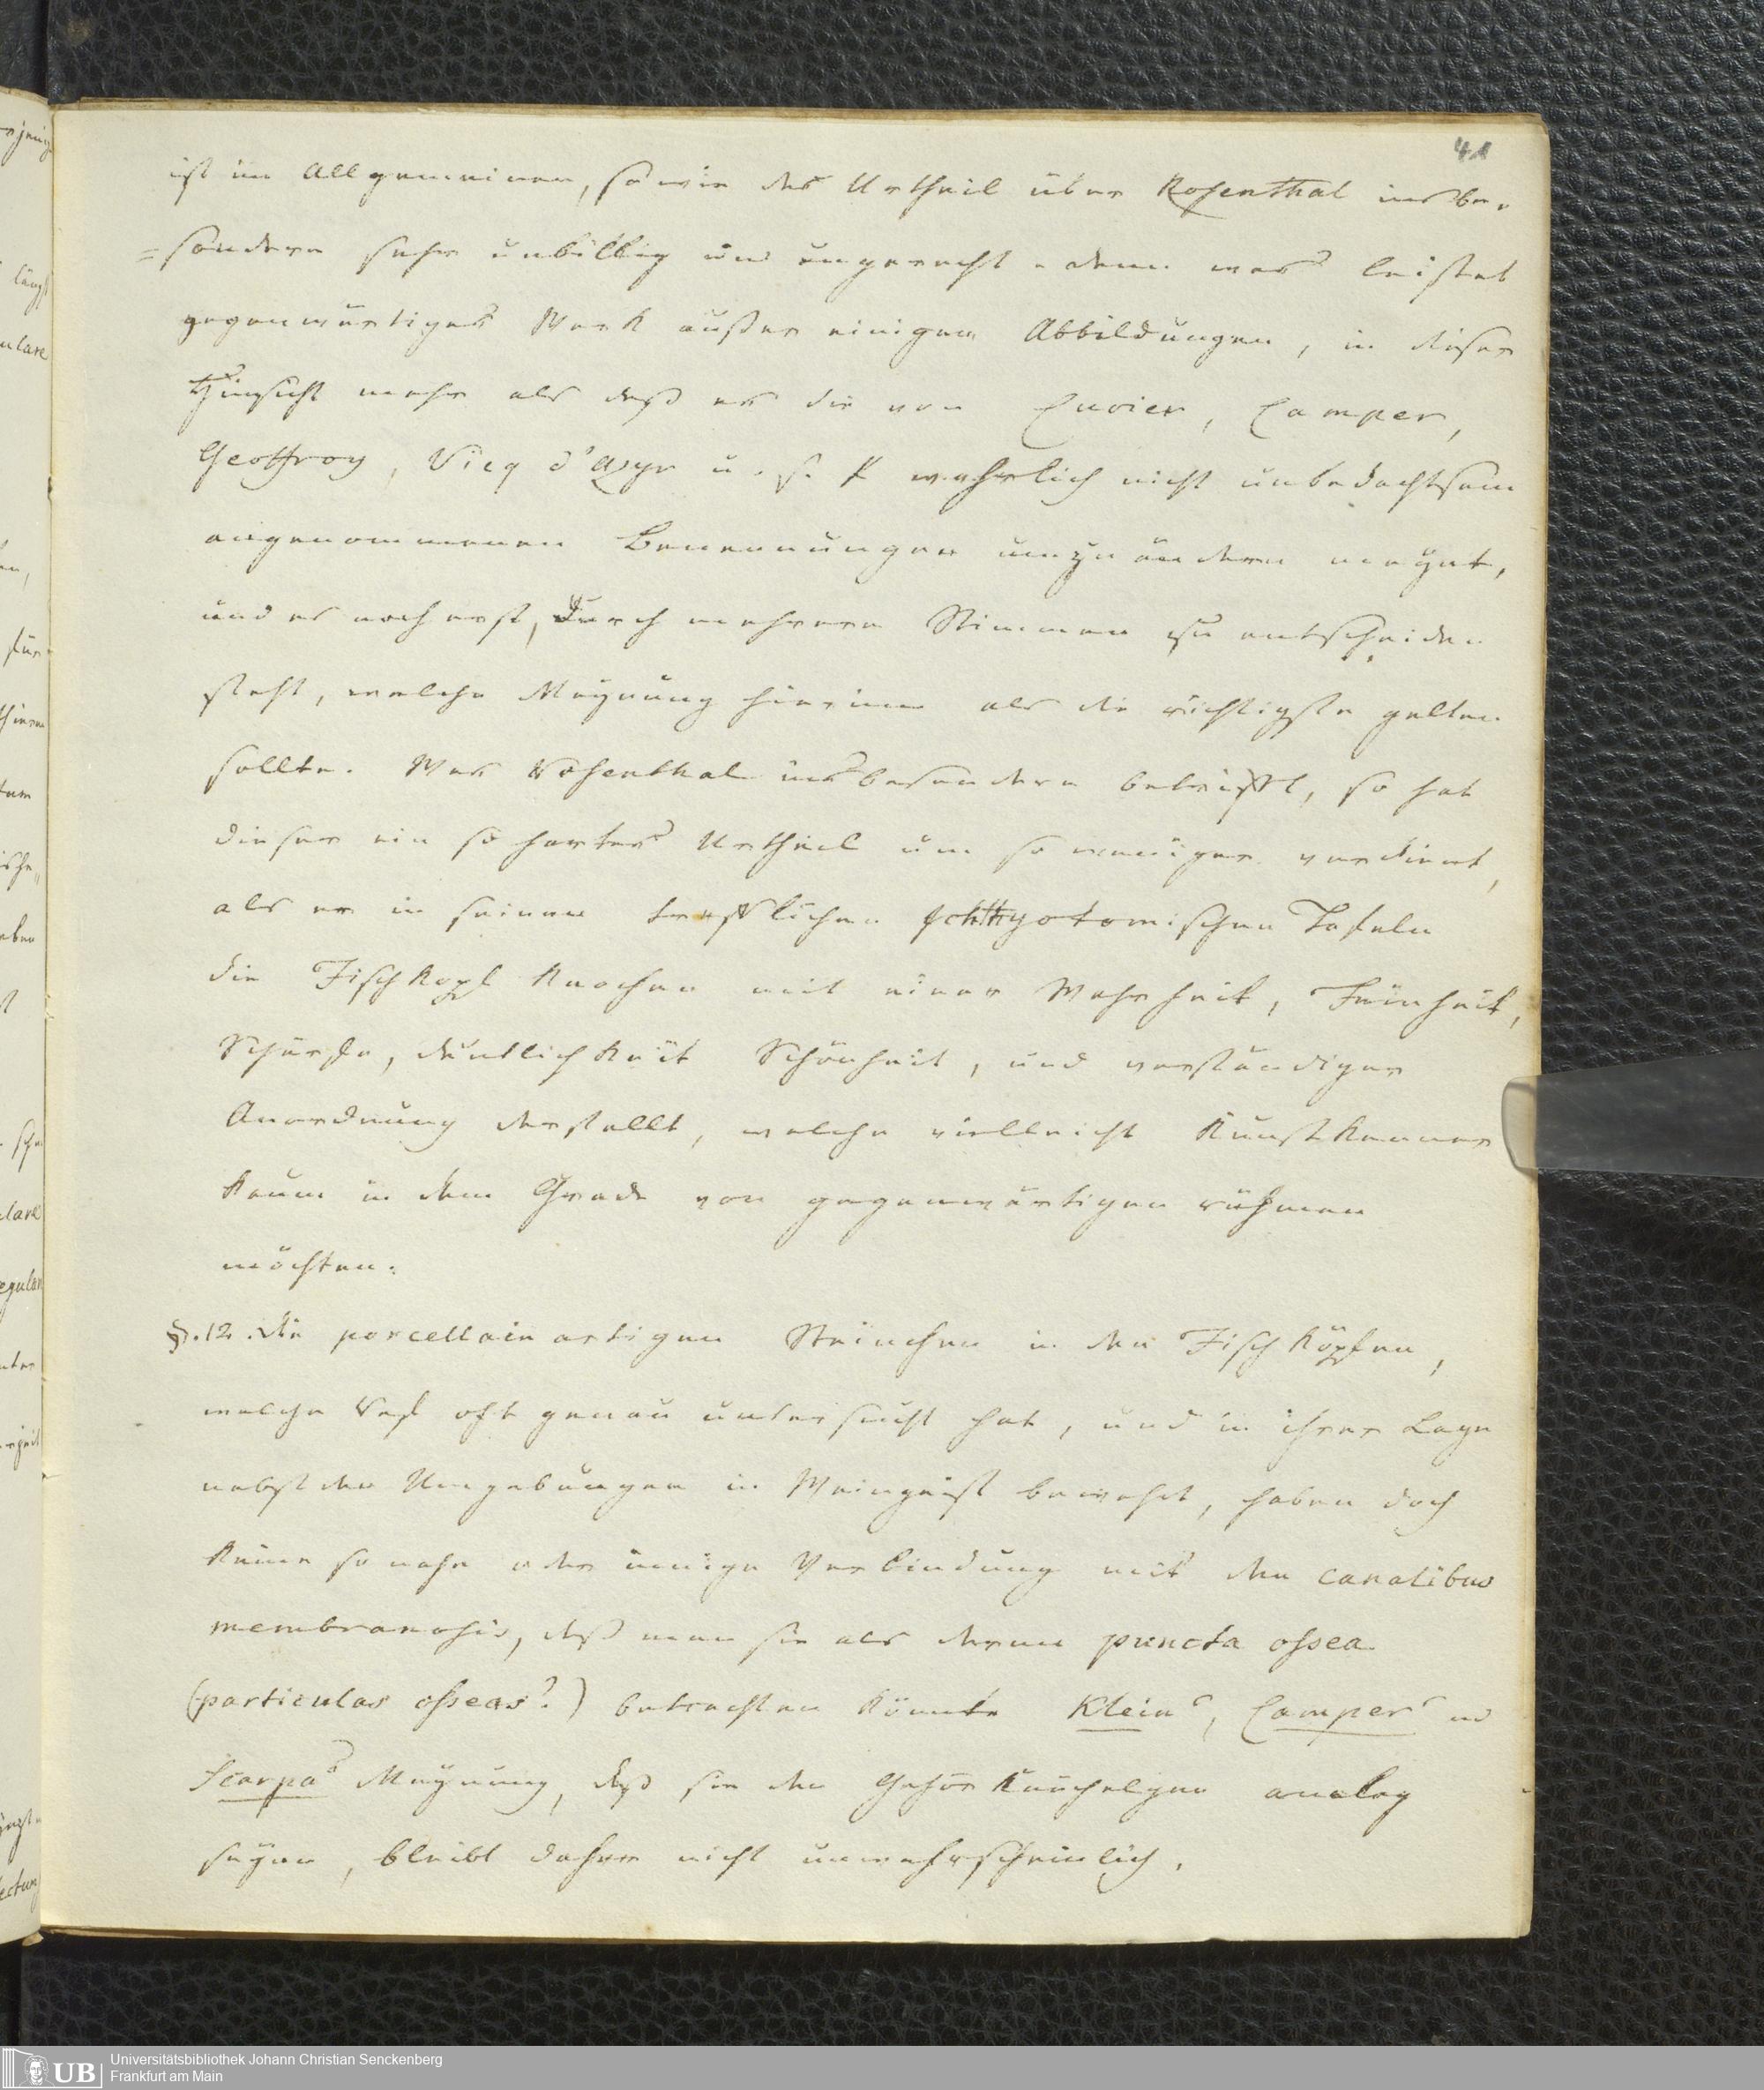 41
ist im Allgemeinen, so wie das Urtheil über Rosenthal insbe-
=sondere sehr unbillig und ungerecht – denn was leistet
gegenwärtiges Werk außer einigen Abbildungen, in dieser
Hinsicht mehr als daß es die von Cuvier, Camper,
Geoffroy, Vicq d'Azyr u. s. f. wahrlich nicht unbedachtsam
angenommenen Benennungen umzuändern meynt,
und es noch erst, durch mehrere Stimmen zu entscheiden
steht, welche Meynung hierinn als die richtigste gelten
sollte. Was Rosenthal insbesondere betrifft, so hat
dieser ein so hartes Urtheil um so weniger verdient,
als er in seinen trefflichen Ichthyotomischen Tafeln
die Fischkopf Knochen mit einer Wahrheit, Feinheit,
Schärfe, deutlichkeit Schönheit, und verständiger
Anordnung darstellt, welche vielleicht Kunstkenner
kaum in dem Grade von gegenwärtigen rühmen
möchten.
§. 12. die porcellain artigen Steinchen in den Fischköpfen,
welche Ref oft genau untersucht hat, und in ihrer Lage
nebst den Umgebungen in Weingeist bewahrt, haben doch
keine so nahe oder innige Verbindung mit den canalibus
membranosis, daß man sie als deren puncta ossea
(particulas osseas?) betrachten könnte Kleins, Campers und
Scarpas Meynung, daß sie den Gehörknöchelgen analog
seyen, bleibt daher nicht unwahrscheinlich.
längst
ulare
für
tum
ische,,
eben
st
sche
ulare
egular
nter
ectung
UB
Universitätsbibliothek Johann Christian Senckenberg
Frankfurt am Main